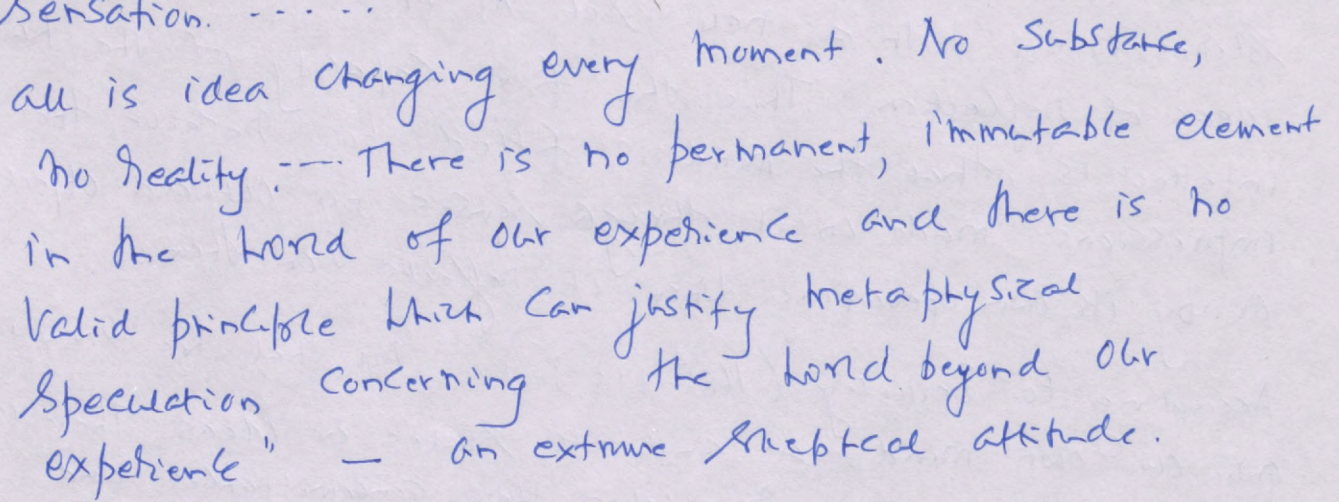 sensation. - - - - -
all is idea changing every moment. No substance,
no reality. --- There is no permanent, immutable element
in the world of our experience and there is no
valid principle which can justify metaphysical
speculation concerning the world beyond our
experience" — an extreme skeptical attitude.